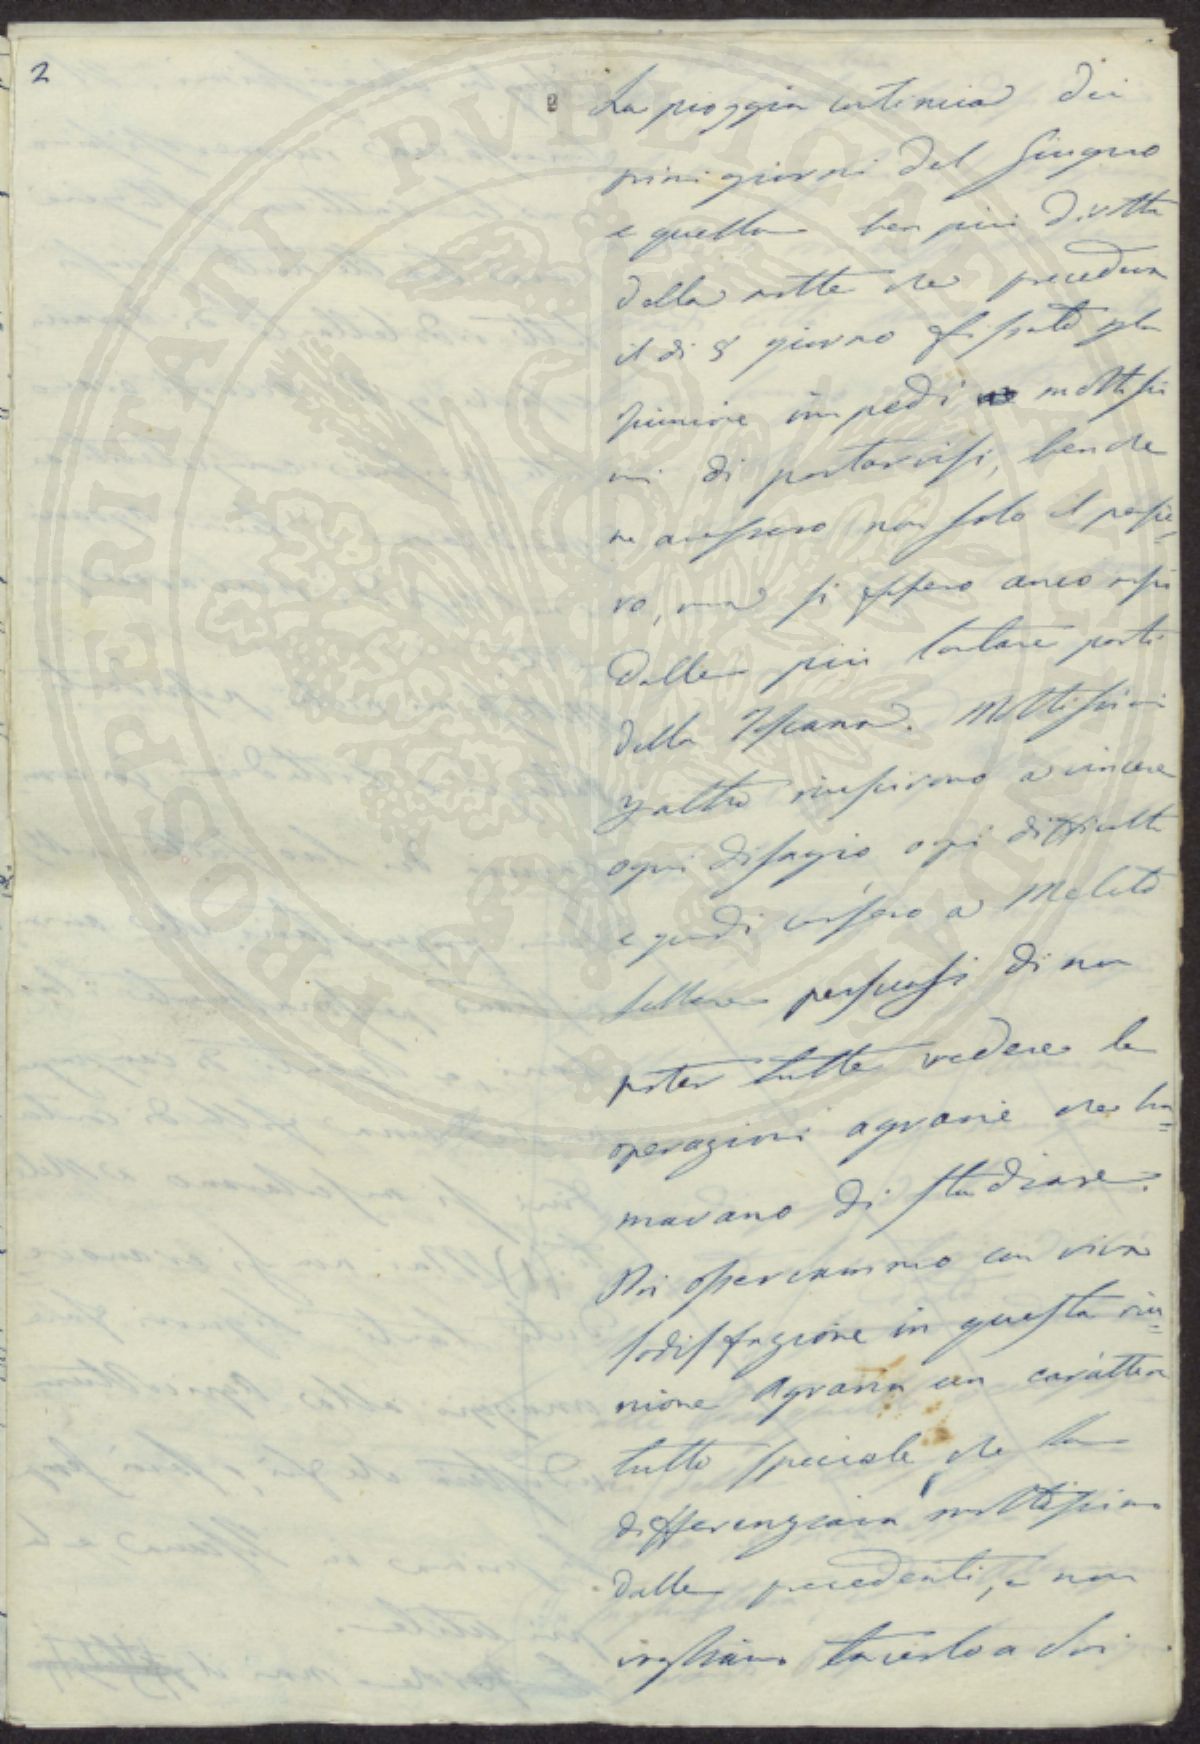 2
La pioggia continua dei
primi giorni del Giugno
e quella ben più dirotta
della notte che precedeva
il dì 8 giorno fissato p la
riunione impedì a moltissi
mi di portarvisi, benche
ne avessero non solo il pensie=
ro, ma si fossero anco mossi
dalle più lontane parti
della Toscana. Moltissimi
p altro riuscirono a vincere
ogni disagio ogni difficoltà
e quindi corsero a Meleto
sebbene persuasi di non
poter tutte vedere le
operazioni agrarie che bra=
mavano di studiare.
Noi osservammo con viva
sodisfazione in questa riu=
nione Agraria un carattere
tutto speciale che la
differenziava moltissimo
dalle precedenti, e non
vogliamo tacerlo a chi
PROSPERITATI PUBLICAE